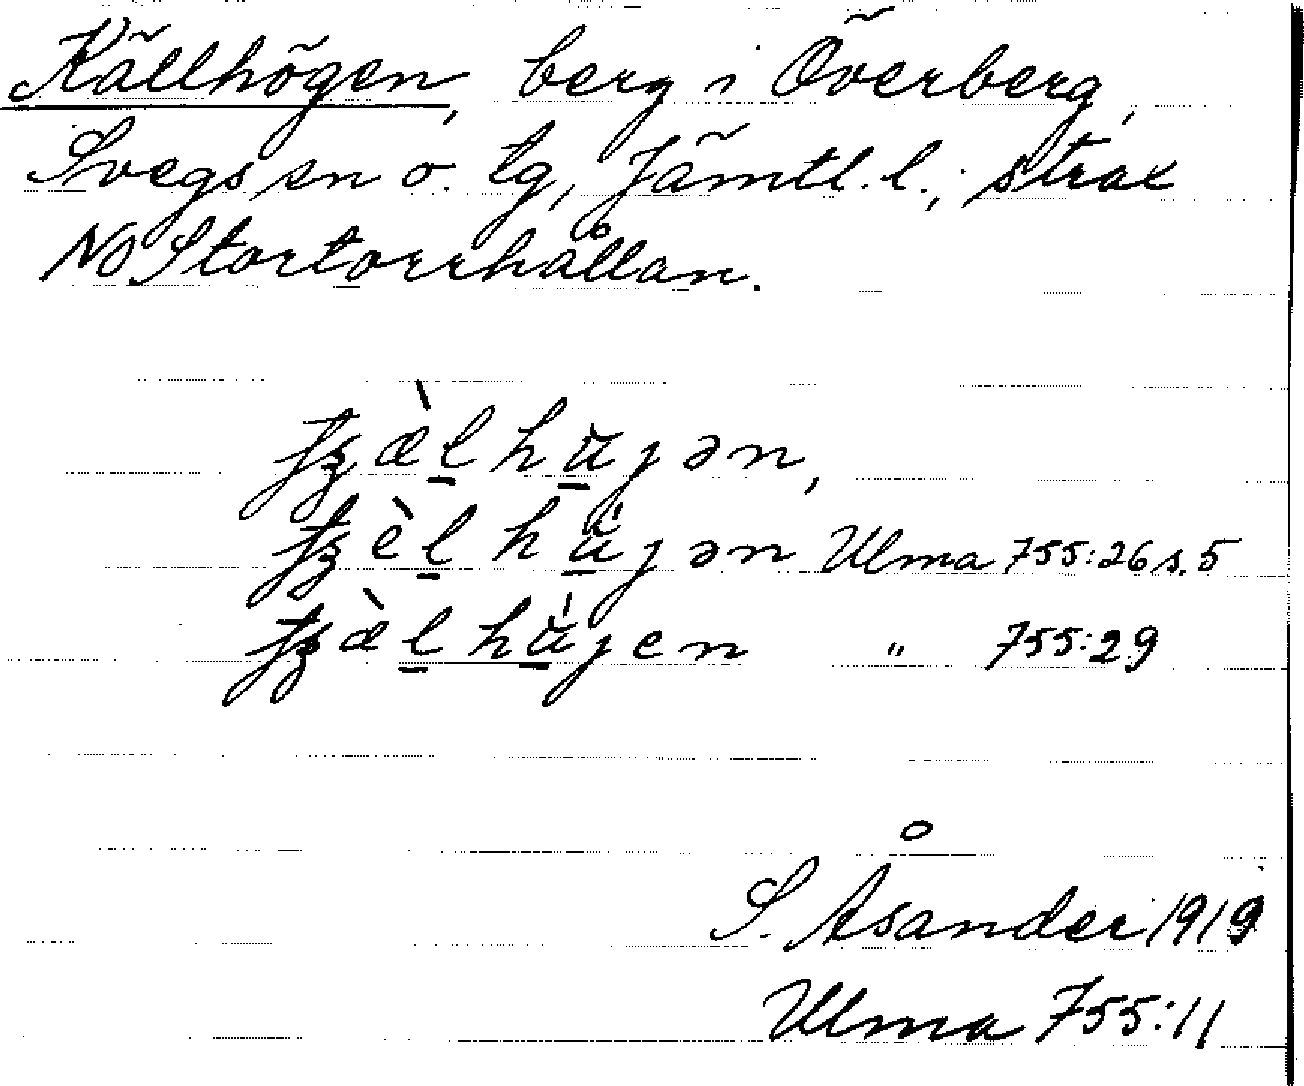 Källhögen, berg i Överberg,
Svegs sn o. tg, Jämtl. l.; strax
NO Stortorrhållan.
Ulma 755:26 s. 5
" 755:29
S. Åsander 1919
Ulma 755:11